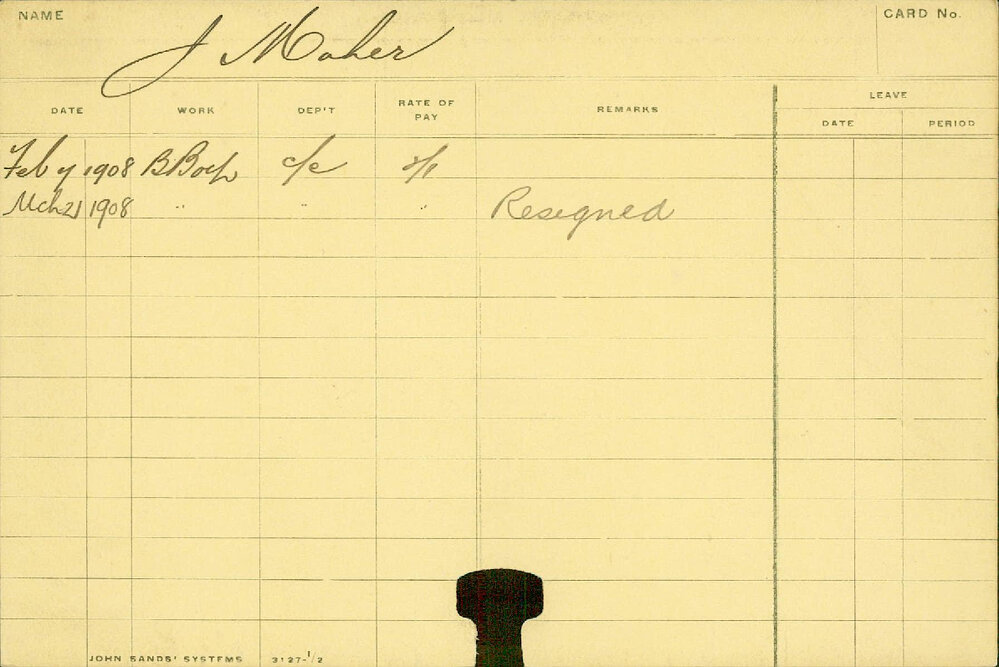 NAME J Maher CARD No.
DATE WORK DEP'T RATE OF PAY REMARKS LEAVE
DATE PERIOD
Feb 7 1908 B Boy c/c
Mch 21 1908 " " " Resigned
JOHN SANDS' SYSTEMS 3127-1/2